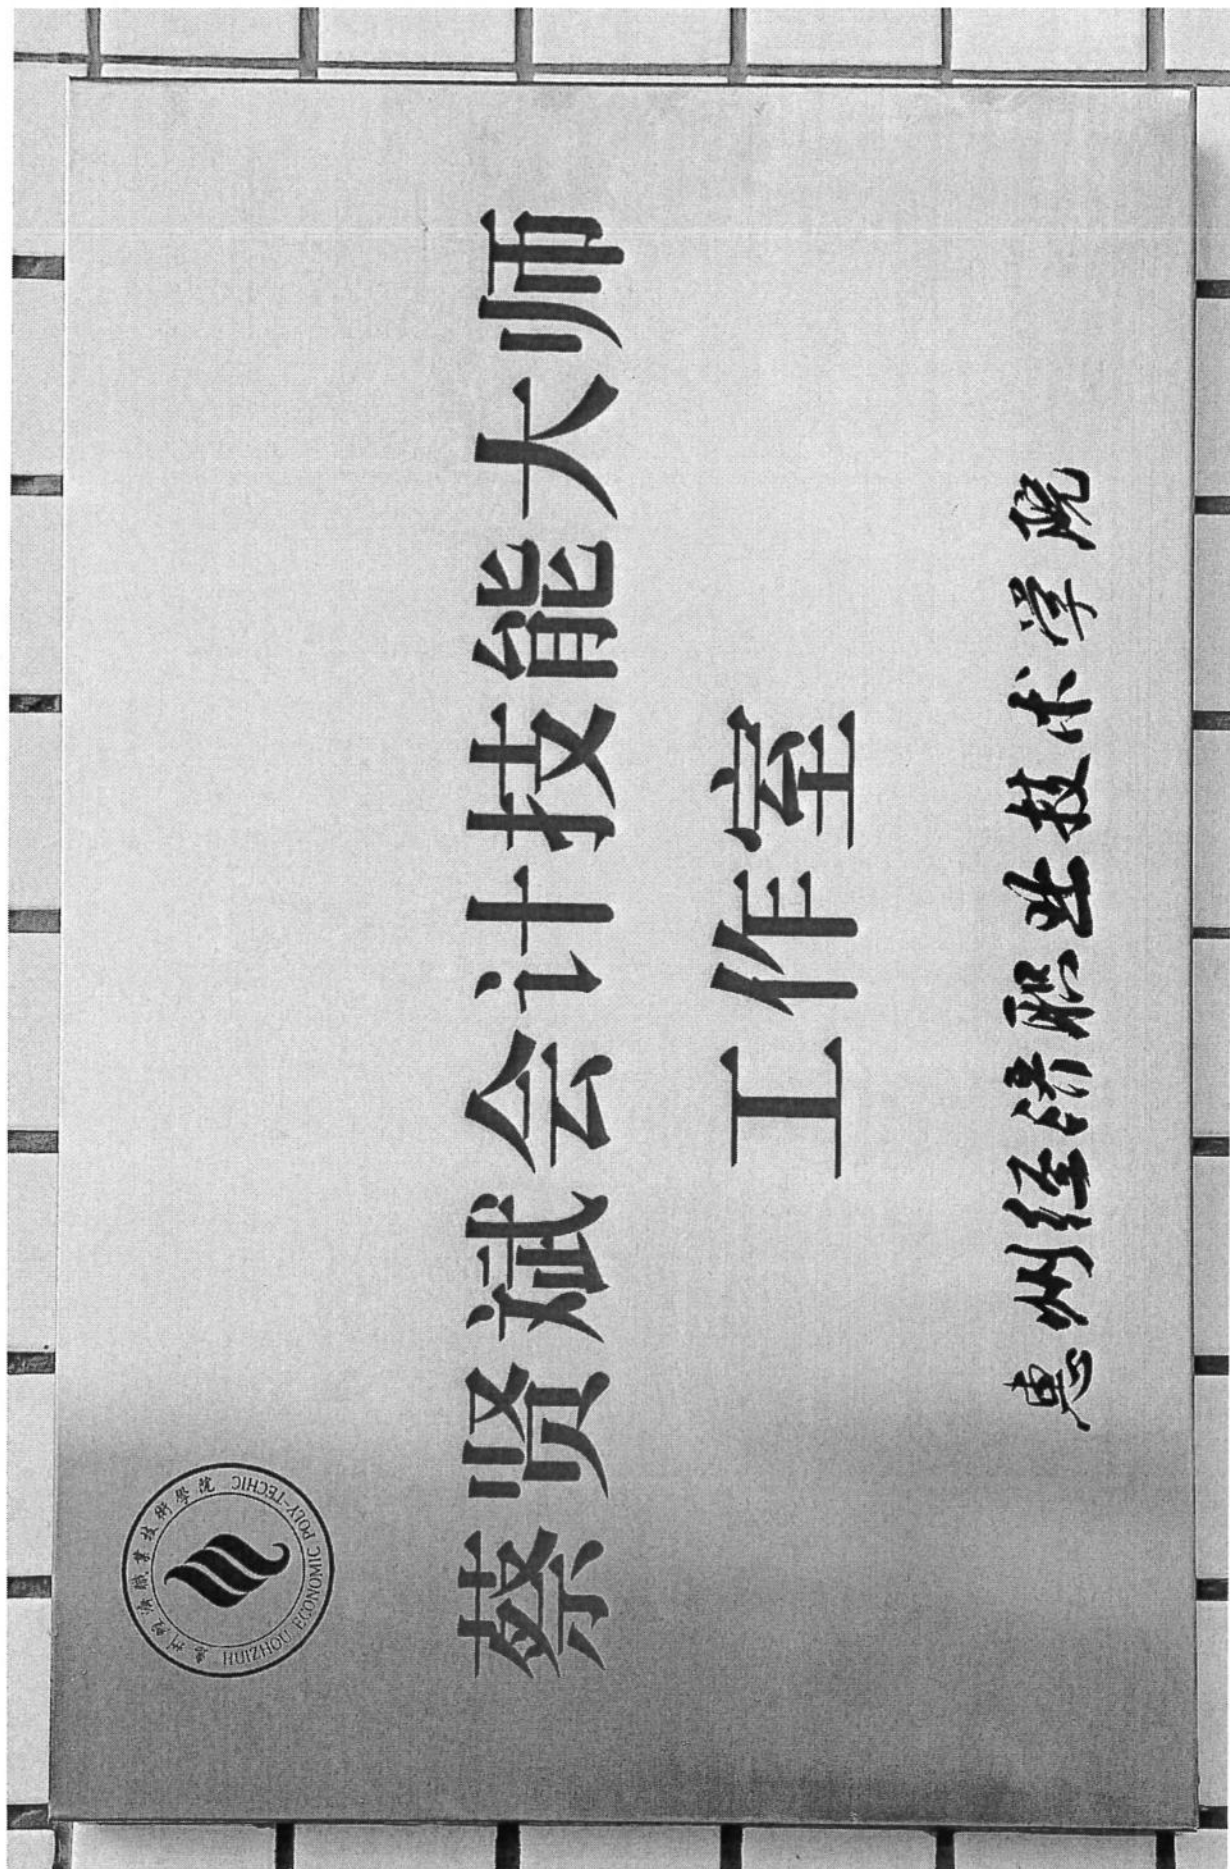 惠州經濟職業技術學院
HUIZHOU ECONOMIC POLY-TECHIC
蔡贤斌会计技能大师
工作室
惠州经济职业技术学院